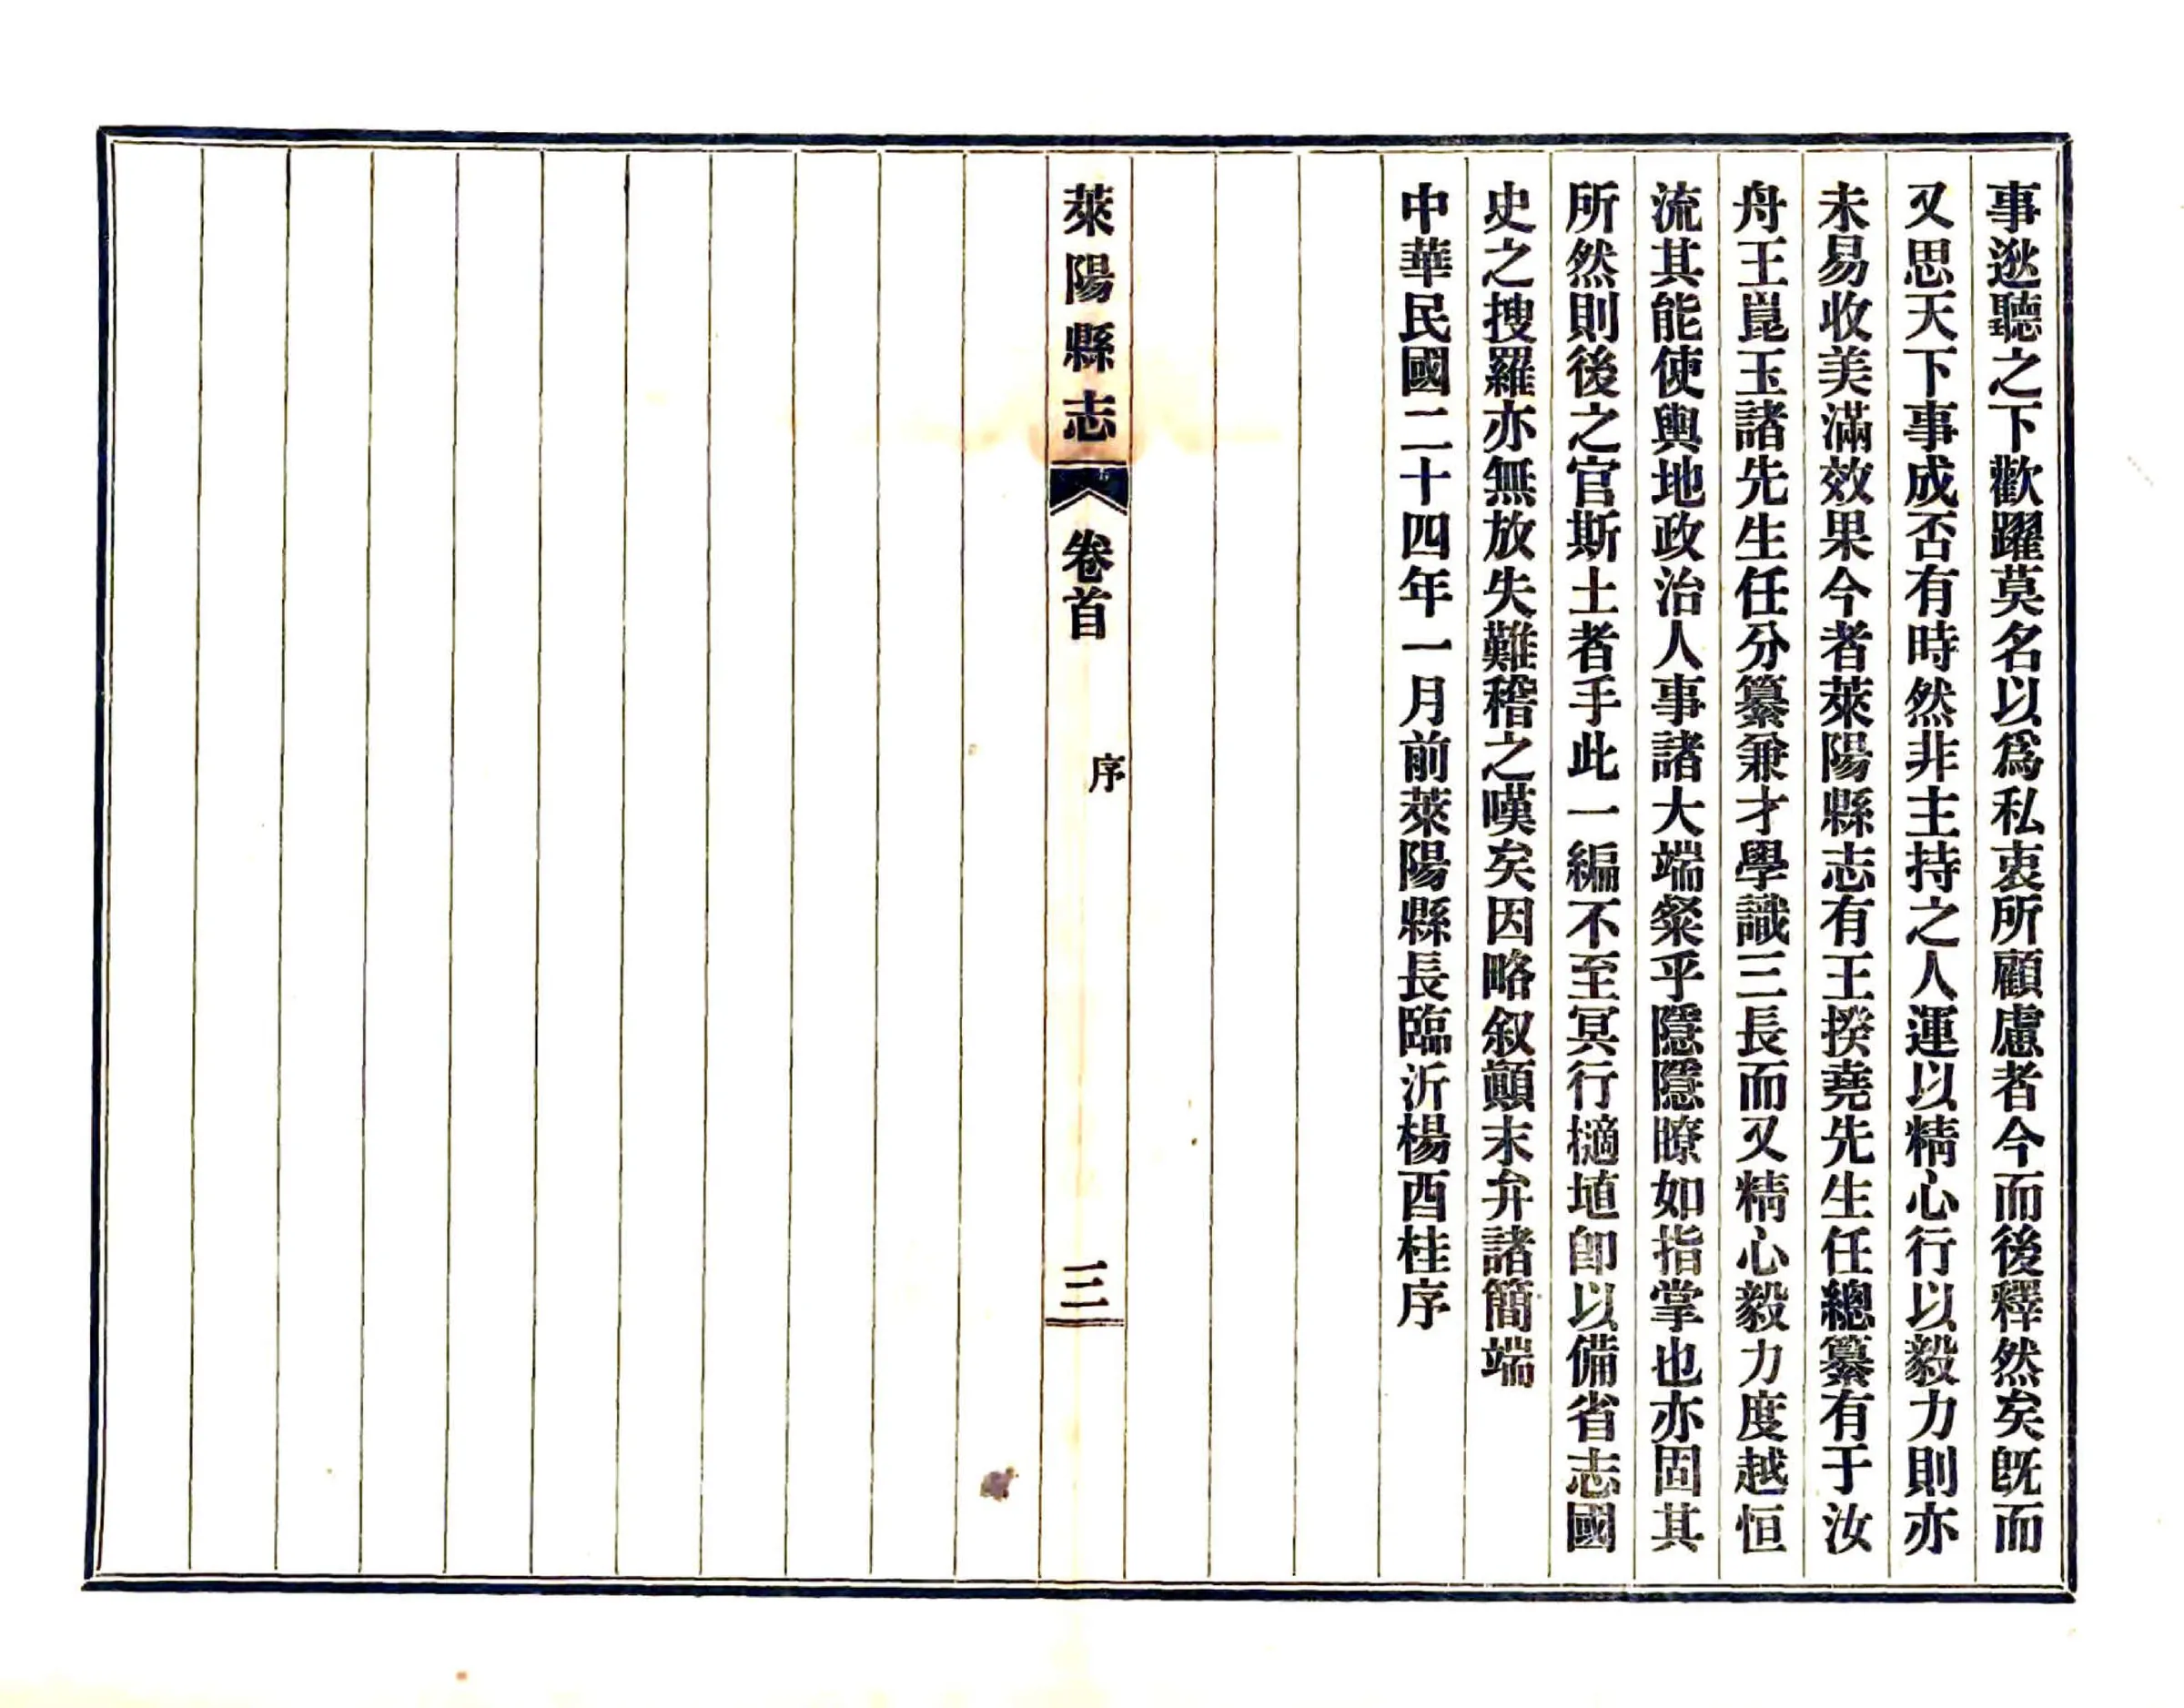 事逖聽之下歡躍莫名以爲私衷所顧慮者今而後釋然矣旣而
又思天下事成否有時然非主持之人運以精心行以毅力則亦
未易收美滿效果今者萊陽縣志有王揆堯先生任總纂有于汝
舟王崑玉諸先生任分纂兼才學識三長而又精心毅力度越恒
流其能使輿地政治人事諸大端粲乎隱隱瞭如指掌也亦固其
所然則後之官斯土者手此一編不至冥行擿埴卽以備省志國
史之搜羅亦無放失難稽之嘆矣因略叙顚末弁諸簡端
中華民國二十四年一月前萊陽縣長臨沂楊酉桂序
萊陽縣志
卷首
序
三